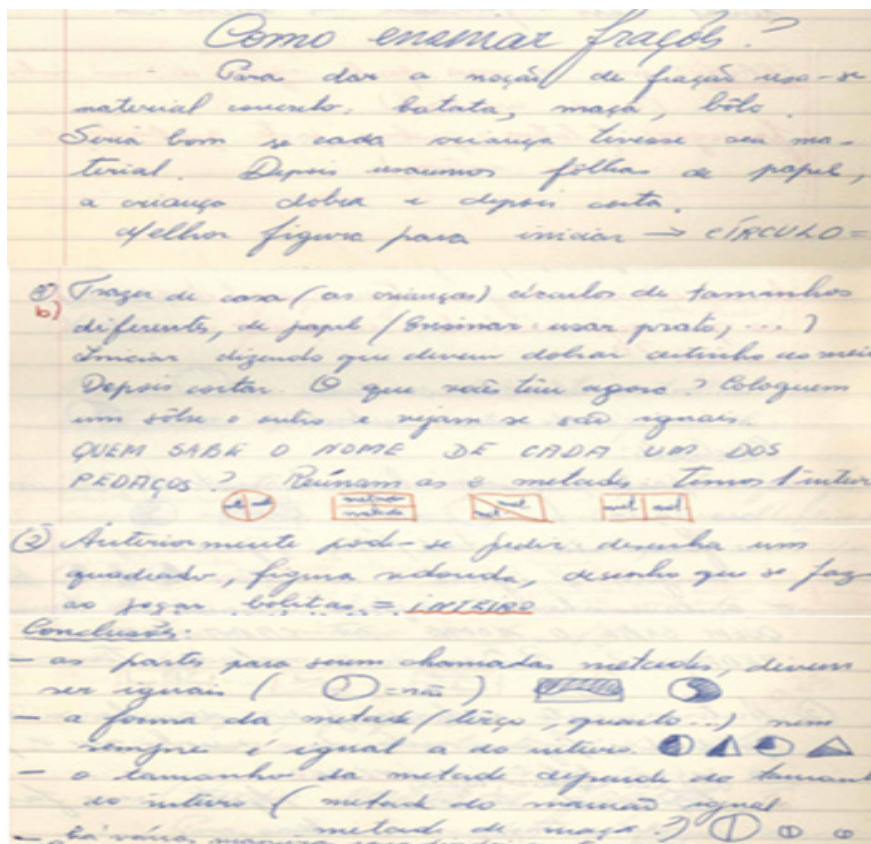 Como ensinar frações?
Para dar a noção de fração usa-se
material concreto: batata, maçã, bôlo.
Seria bom se cada criança tivesse seu ma-
terial. Depois usaumos fôlhas de papel,
a criança dobra e depois corta.
Melhor figura para iniciar → CÍRCULO =
① Trazer de casa (as crianças) círculos de tamanhos
b) diferentes, de papel (Ensinar usar prato, ...)
Iniciar dizendo que devem dobrar certinho no meio
Depois cortar. O que vocês têm agora? Coloquem
um sôbre o outro e vejam se são iguais.
QUEM SABE O NOME DE CADA UM DOS
PEDAÇOS? Reúnam as 2 metades Temos 1 inteir
met met metade metade met met met met
② Anteriormente pode-se pedir: desenha um
quadrado, figura redonda, desenho que se faz
ao jogar bolitas = INTEIRO
Conclusões:
- as partes para serem chamadas metades, devem
ser iguais ( =não )
- a forma da metade (têrço, quarto...) nem
sempre é igual a do inteiro.
- o tamanho da metade depende do taman
do inteiro (metade do mamão igual
metade de maçã?)
- Há várias